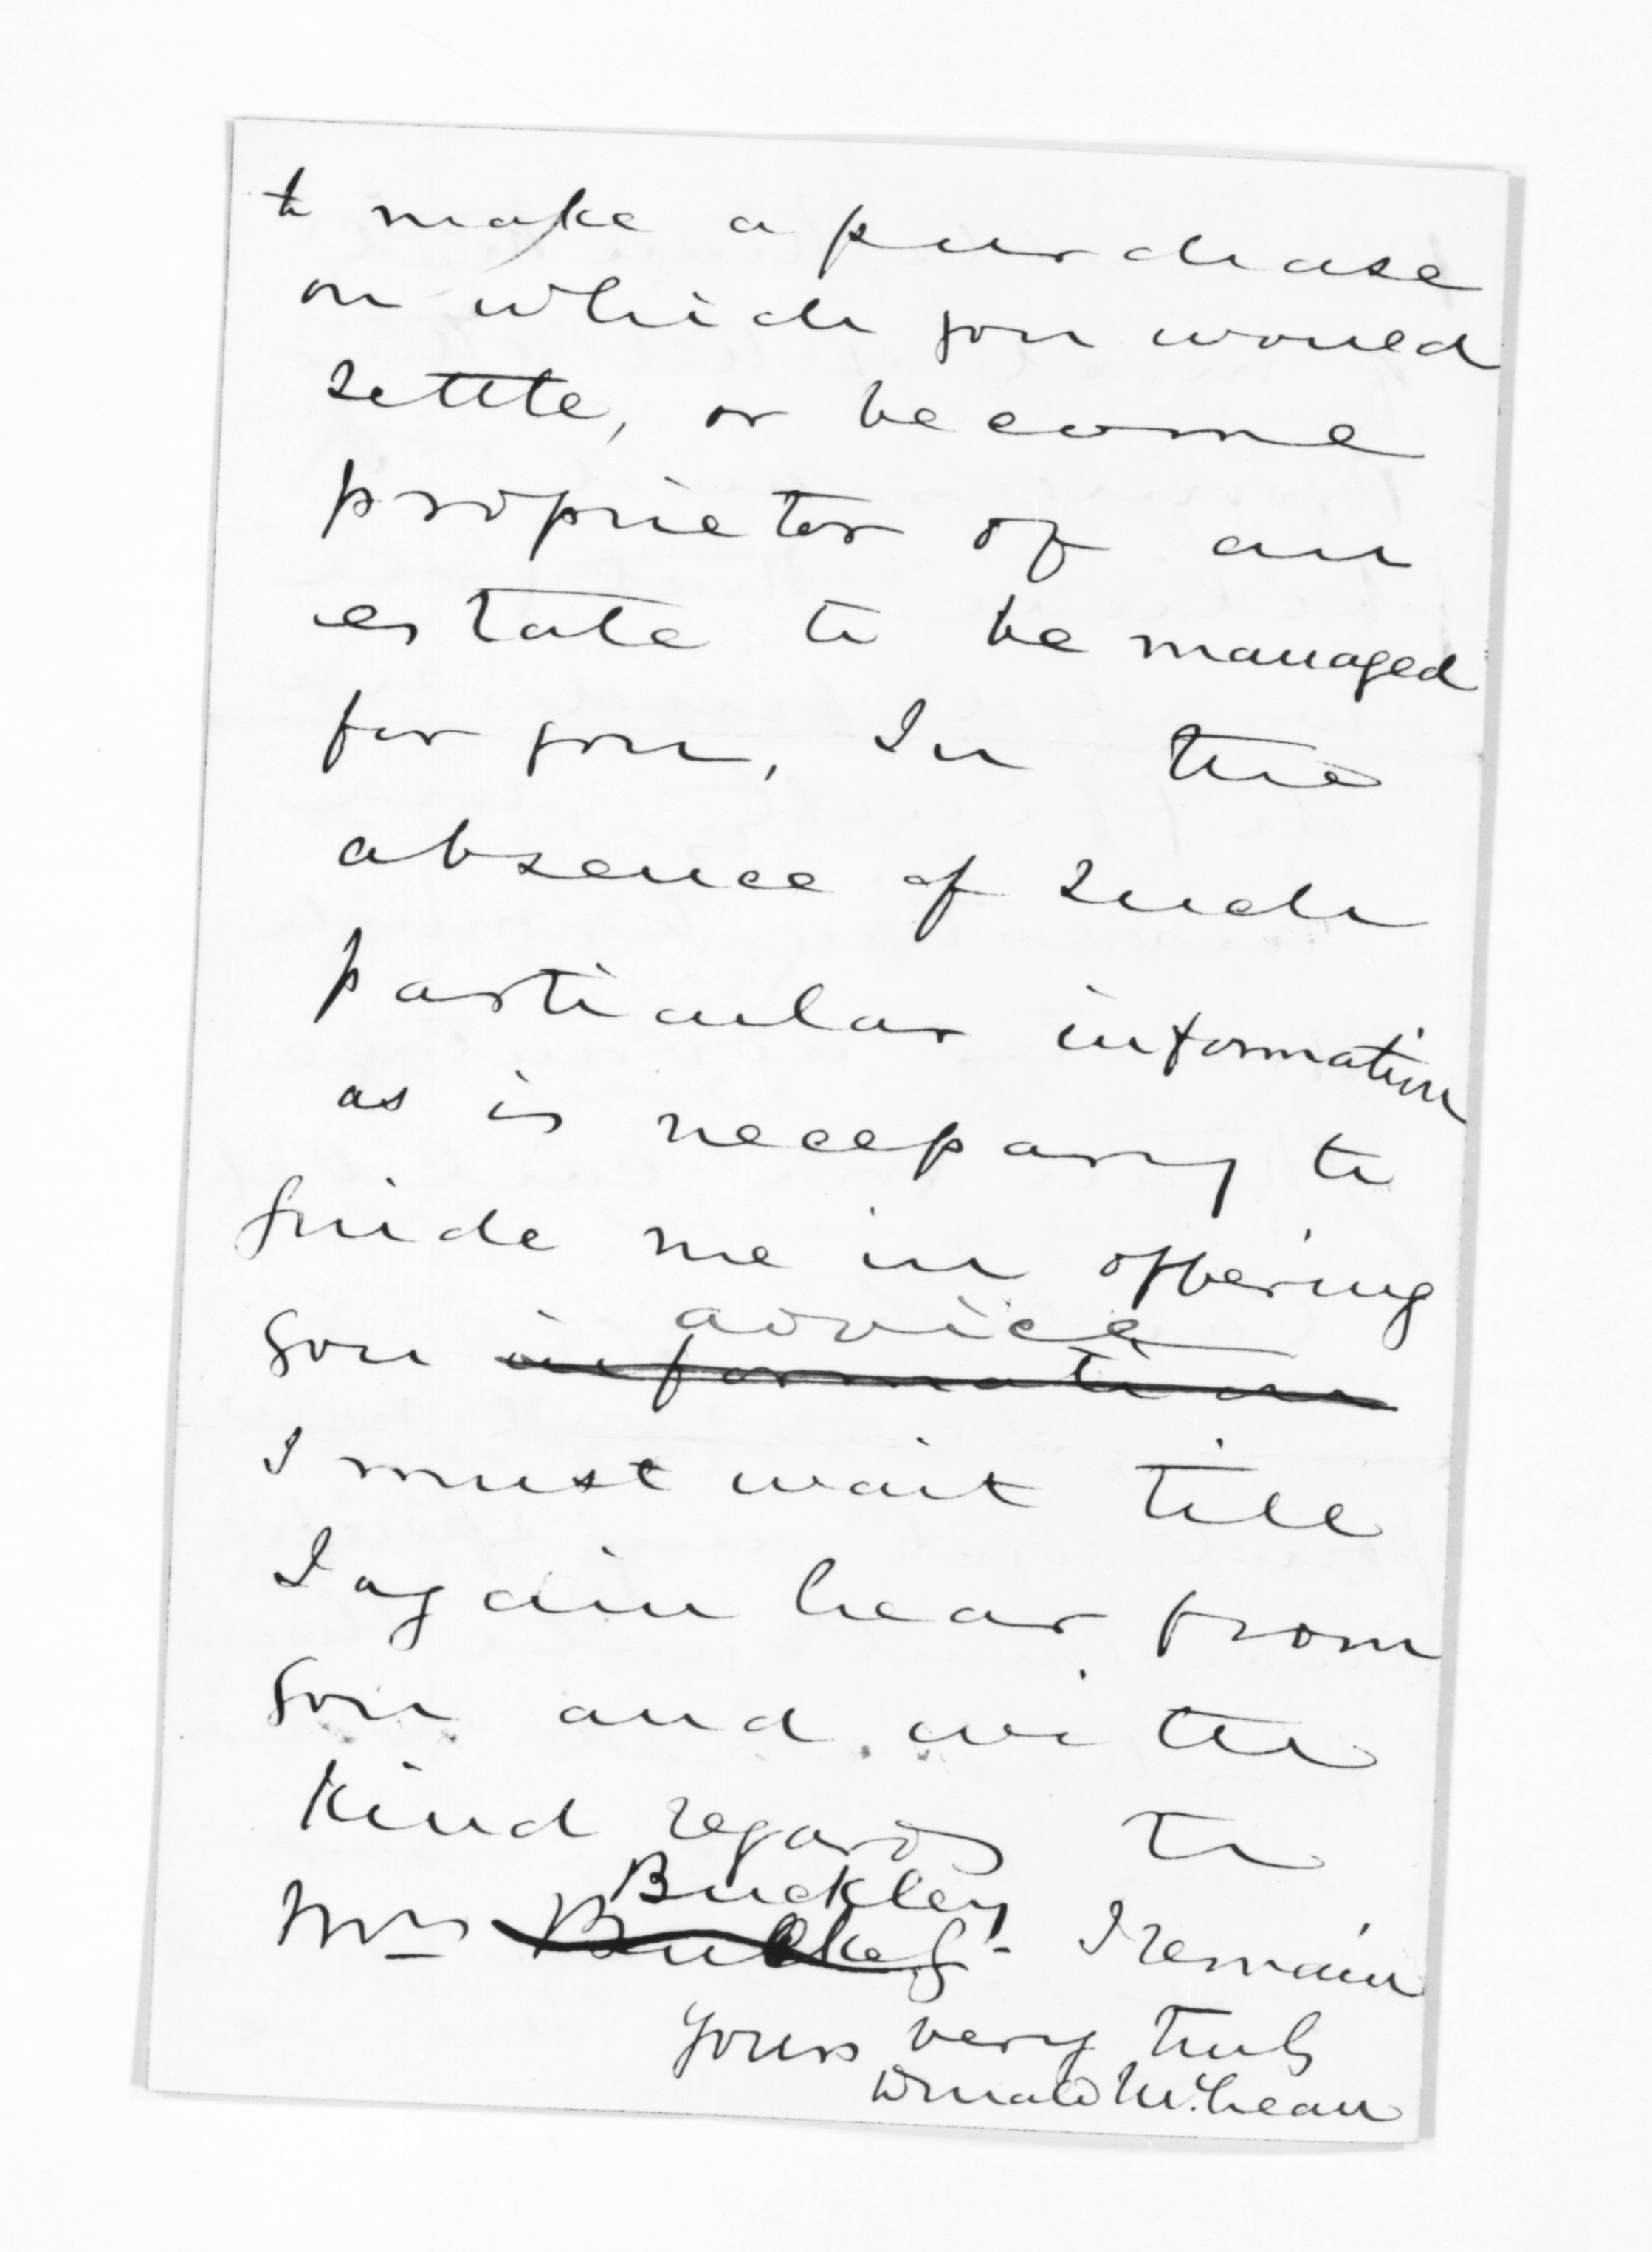 to make a purchase
on which you would
settle, or become
proprietor of an
estate to be managed
for you, In the
absence of such
particular information
as is necessary to
guide me in offering
advice
you information
I must wait till
I again hear from
you and with
kind regards to
Buckley
Mrs Bulkely - I remain
Yours very truly
Donald McLean